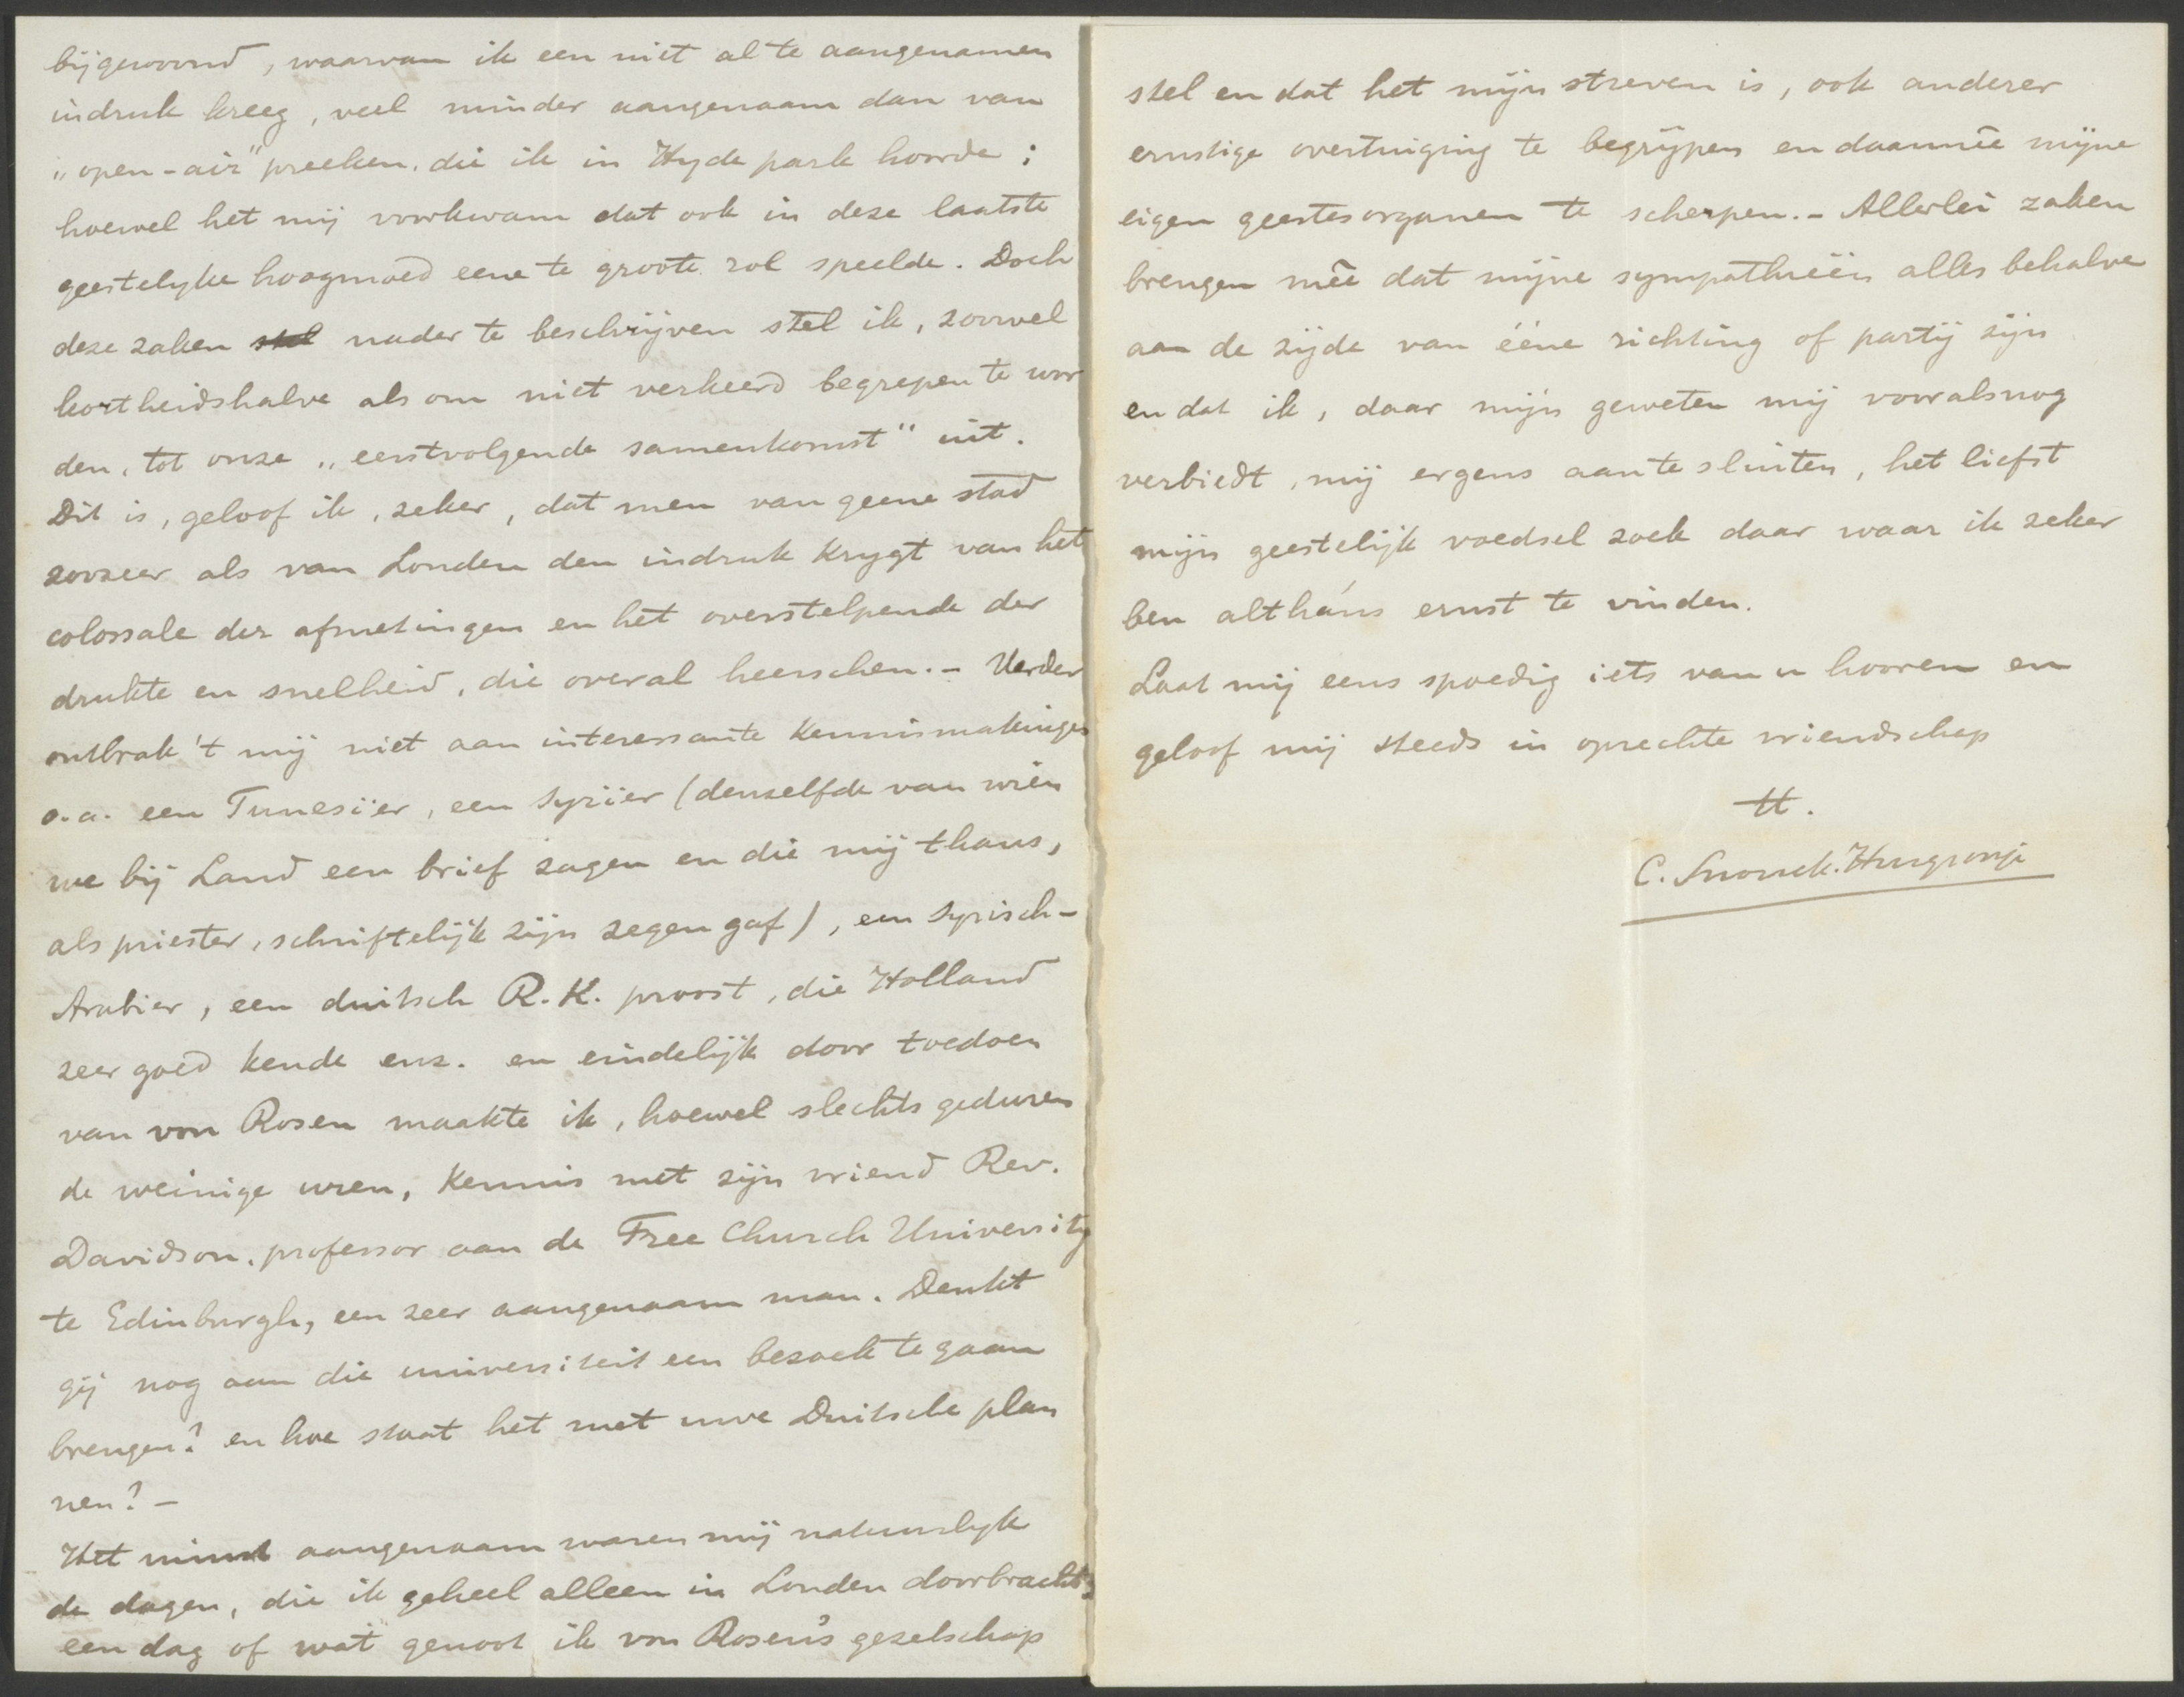 bijgewoond, waarvan ik een niet al te aangenamen
indruk kreeg, veel minder aangenaam dan van
„open-air" preeken, die ik in Hyde park hoorde;
hoewel het mij voorkwam dat ook in deze laatste
geestelyke hoogmoed eene te groote rol speelde. Doch
deze zaken stel nader te beschrijven stel ik, zoowel
kortheidshalve als om niet verkeerd begrepen te wor
den, tot onze „eerstvolgende samenkomst" uit.
Dit is, geloof ik, zeker, dat men van geene stad
zoozeer als van Londen den indruk krygt van het
colossale der afmetingen en het overstelpende der
drukte en snelheid, die overal heerschen. - Verder
ontbrak 't mij niet aan interessante kennismakingen
o.a. een Tunesiër, een Syriër (denzelfde van wien
we bij Land een brief zagen en die mij thans,
als priester, schriftelijk zijn zegen gaf), een Syrisch-
Arabier, een duitsch R.K. proost, die Holland
zeer goed kende enz. en eindelijk door toedoen
van von Rosen maakte ik, hoewel slechts geduren
de weinige uren, kennis met zijn vriend Rev.
Davidson, professor aan de Free Church University
te Edinburgh, een zeer aangenaam man. Denkt
gij nog aan die universiteit een bezoek te gaan
brengen? en hoe staat het met uwe Duitsche plan
nen? -
Het minst aangenaam waren mij natuurlyk
de dagen, die ik geheel alleen in Londen doorbracht;
een dag of wat genoot ik von Rosen's gezelschap
stel en dat het mijn streven is, ook anderer
ernstige overtuiging te begrijpen en daarmêe mijne
eigen geestesorganen te scherpen. - Allerlei zaken
brengen mêe dat mijne sympathieën alles behalve
aan de zijde van ééne richting of partij zijn
en dat ik, daar mijn geweten mij vooralsnog
verbiedt, mij ergens aan te sluiten, het liefst
mijn geestelijk voedsel zoek daar waar ik zeker
ben altháns ernst te vinden.
Laat mij eens spoedig iets van u hooren en
geloof mij steeds in oprechte vriendschap
tt.
C. Snouck Hurgronje